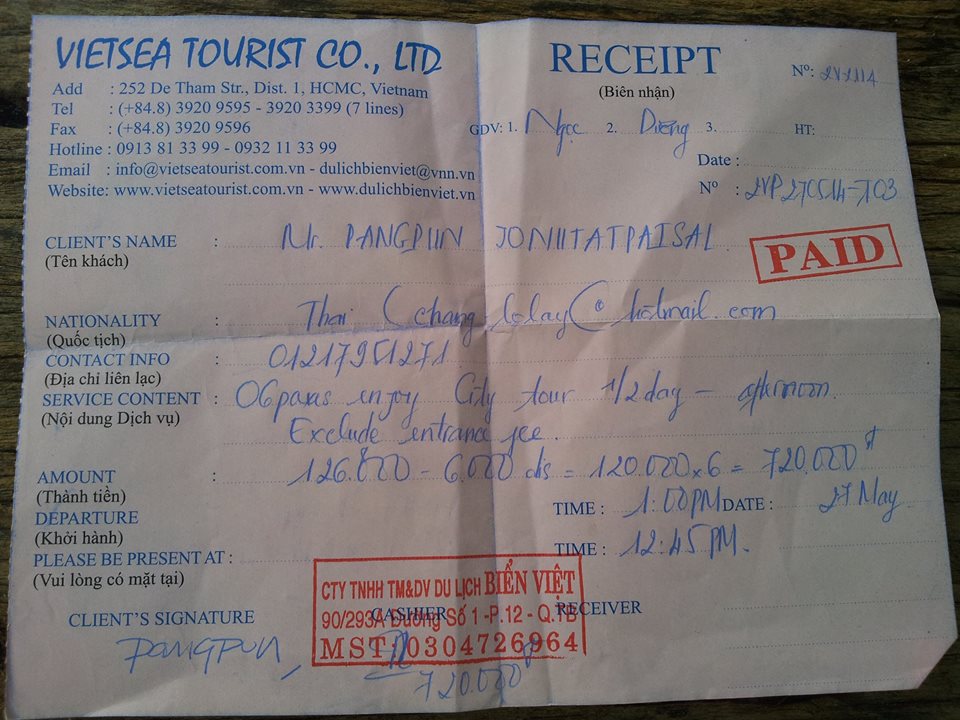 VIETSEA TOURIST CO., LTD
RECEIPT
(Biên nhận)
Nº:
Add : 252 De Tham Str., Dist. 1, HCMC, Vietnam
Tel : (+84.8) 3920 9595 - 3920 3399 (7 lines)
Fax : (+84.8) 3920 9596
Hotline : 0913 81 33 99 - 0932 11 33 99
Email : info@vietseatourist.com.vn - dulichbienviet@vnn.vn
Website: www.vietseatourist.com.vn - www.dulichbienviet.vn
GDV: 1. Ngọc 2. Dương 3. HT:
Date :
Nº : 2VP270514-703
CLIENT'S NAME : Mr. PANGPUN JONUTATPAISAL
(Tên khách)
PAID
NATIONALITY : Thai (chang_lolay@hotmail.com
(Quốc tịch)
CONTACT INFO : 01217951271
(Địa chỉ liên lạc)
SERVICE CONTENT : 06 paxs enjoy City tour 1/2 day - afternoon.
(Nội dung Dịch vụ)
Exclude entrance fee.
AMOUNT : 126.000 - 6.000 dis = 120.000 x 6 = 720.000đ
(Thành tiền)
DEPARTURE TIME : 1:00PM DATE : 27 May
(Khởi hành)
PLEASE BE PRESENT AT : TIME : 12:45 PM.
(Vui lòng có mặt tại)
CTY TNHH TM&DV DU LỊCH BIỂN VIỆT
90/293A Đường Số 1 -P.12 - Q.TB
MST: 0304726964
CLIENT'S SIGNATURE CASHIER RECEIVER
PANGPUN
720.000đ